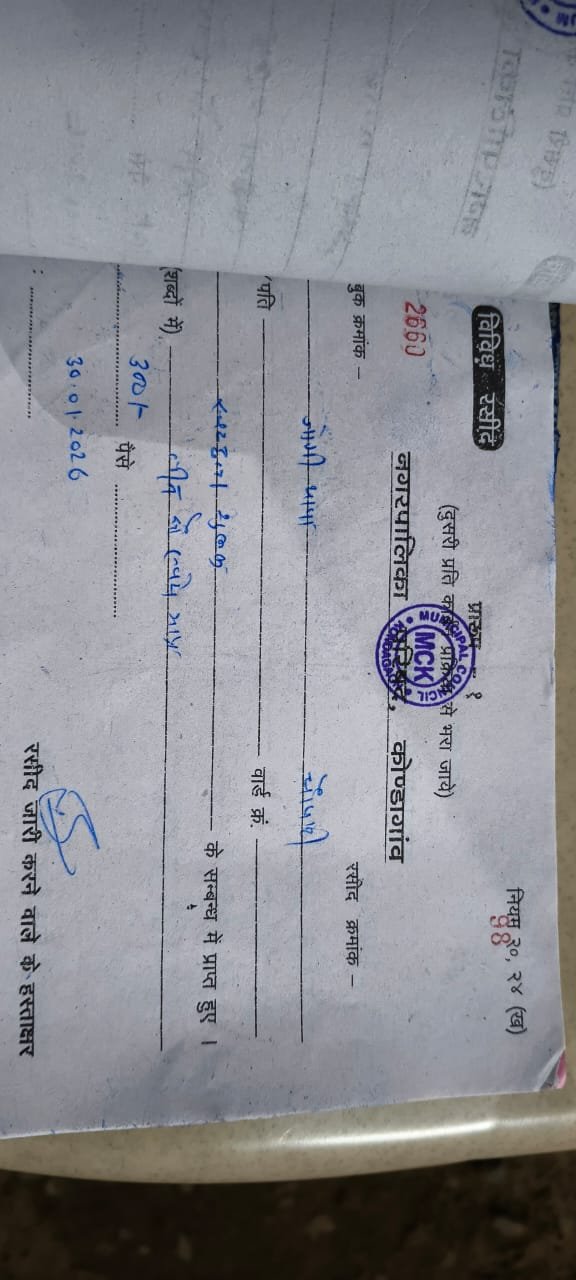 विविध रसीद
प्रारूप १
नियम २०, २४ (ख)
(दुसरी प्रति कार्बन प्रक्रिया से भरा जावे)
98
नगरपालिका परिषद, कोण्डागांव
MUNICIPAL COUNCIL
MCK
KONDAGAON
2660
बुक क्रमांक –
रसीद क्रमांक –
पति
वार्ड क्रं.
शुल्क
के सम्बन्ध में प्राप्त हुए ।
(शब्दो में)
तीन सौ रुपये मात्र
300/- पैसे
30.01.2026
रसीद जारी करने वाले के हस्ताक्षर